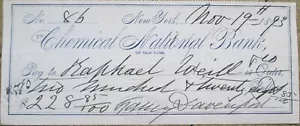 No. 86 New York, Nov 19th 1893
Chemical National Bank,
OF NEW YORK.
Pay to Raphael Weill & Co Order,
Two Hundred & twenty eight 85/100
$228 85/100 Fanny Davenport